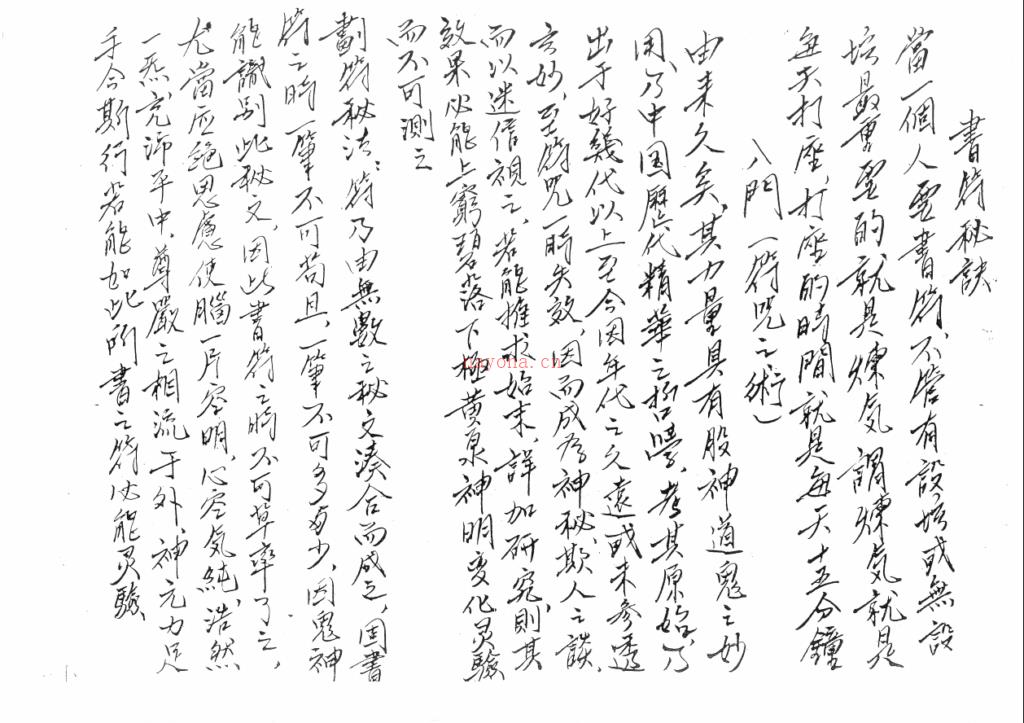 書符秘訣
當一個人要書符，不管有設坛或無設
坛最重要的就是煉気，謂煉気就是
每天打座，打座的時間就是每天十五分鐘
入門（符咒之術）
由来久矣，其力量具有股神道鬼之妙
用，乃中国歷代精華之哲學，考其原始，乃
出于好幾代以上至今因年代之久遠或未參透
玄妙，至符咒一時失效，因而成為神秘，欺人之談，
而以迷信視之，若能推求始末，詳加研究，則其
效果必能上窮碧落下極黃泉神明变化灵驗
而不可測之
劃符秘法：符乃由無數之秘文湊合而成之，因書
符之時一筆不可苟且，一筆不可多与少，因鬼神
能識别此秘文，因此書符之時不可草率了之，
尤當应絕思慮使腦一片空明，心空気純，浩然
一炁，充沛平中，尊嚴之相流于外，神元力足
手合斯行若能如此所書之符必能灵驗
nayona.cn